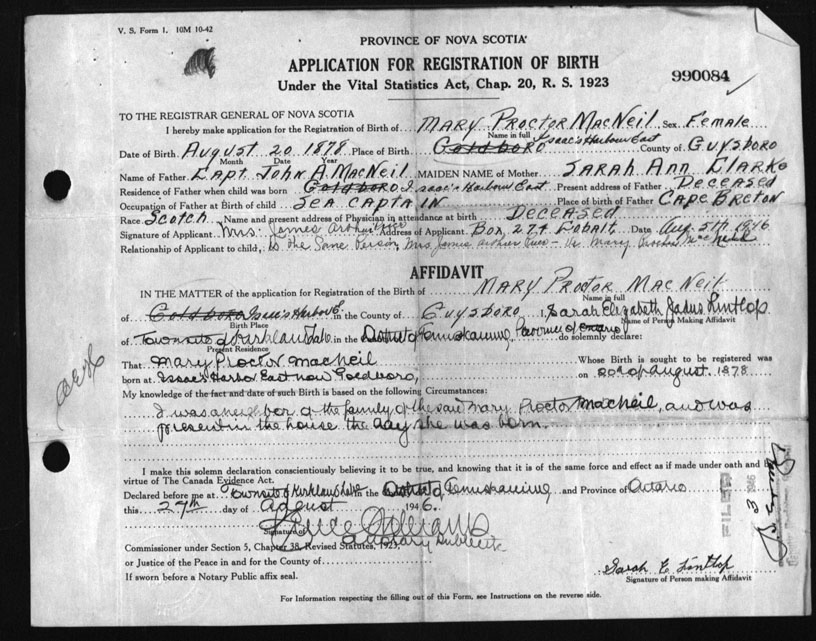 V. S. Form 1. 10M 10-42
PROVINCE OF NOVA SCOTIA
APPLICATION FOR REGISTRATION OF BIRTH
Under the Vital Statistics Act, Chap. 20, R. S. 1923
990084
TO THE REGISTRAR GENERAL OF NOVA SCOTIA
I hereby make application for the Registration of Birth of MARY Proctor MacNeil Sex Female
Name in full
Isaac's Harbour East
Date of Birth August 20 1878 Place of Birth Goldboro County of Guysboro
Month Date Year
Name of Father Capt. John A. MacNeil MAIDEN NAME of Mother SARAH Ann Clarke
Residence of Father when child was born Goldboro Isaac's Harbour East Present address of Father Deceased
Occupation of Father at Birth of child Sea Captain Place of birth of Father Cape Breton
Race Scotch Name and present address of Physician in attendance at birth Deceased
Signature of Applicant Mrs. James Arthur Address of Applicant Box 274 Cobalt Date Aug 5th 1946
Relationship of Applicant to child, is the Same Person, Mrs. James Arthur Mary Proctor MacNeil
AFFIDAVIT
IN THE MATTER of the application for Registration of the Birth of MARY Proctor MacNeil
Name in full
of Goldboro Isaac's Harbour E. in the County of Guysboro I, Sarah Elizabeth Lintlop
Birth Place Name of Person Making Affidavit
of Townsite of Kirkland Lake in the District of Temiskaming, Province of Ontario do solemnly declare:
Present Residence
That Mary Proctor MacNeil Whose Birth is sought to be registered was
born at Isaacs Harbor East now Goldboro, on 20th of August 1878
My knowledge of the fact and date of such Birth is based on the following Circumstances:
I was a neighbor of the family of the said Mary Proctor MacNeil, and was
present in the house the day she was born.
I make this solemn declaration conscientiously believing it to be true, and knowing that it is of the same force and effect as if made under oath and by
virtue of The Canada Evidence Act.
Declared before me at Townsite of Kirkland Lake in the District of Temiskaming and Province of Ontario
this 27th day of August 1946.
Signature of
a Notary Public
Commissioner under Section 5, Chapter 38, Revised Statutes, 1923,
or Justice of the Peace in and for the County of
If sworn before a Notary Public affix seal.
Sarah E Lintlop
Signature of Person making Affidavit
For Information respecting the filling out of this Form, see Instructions on the reverse side.
FILED
1946